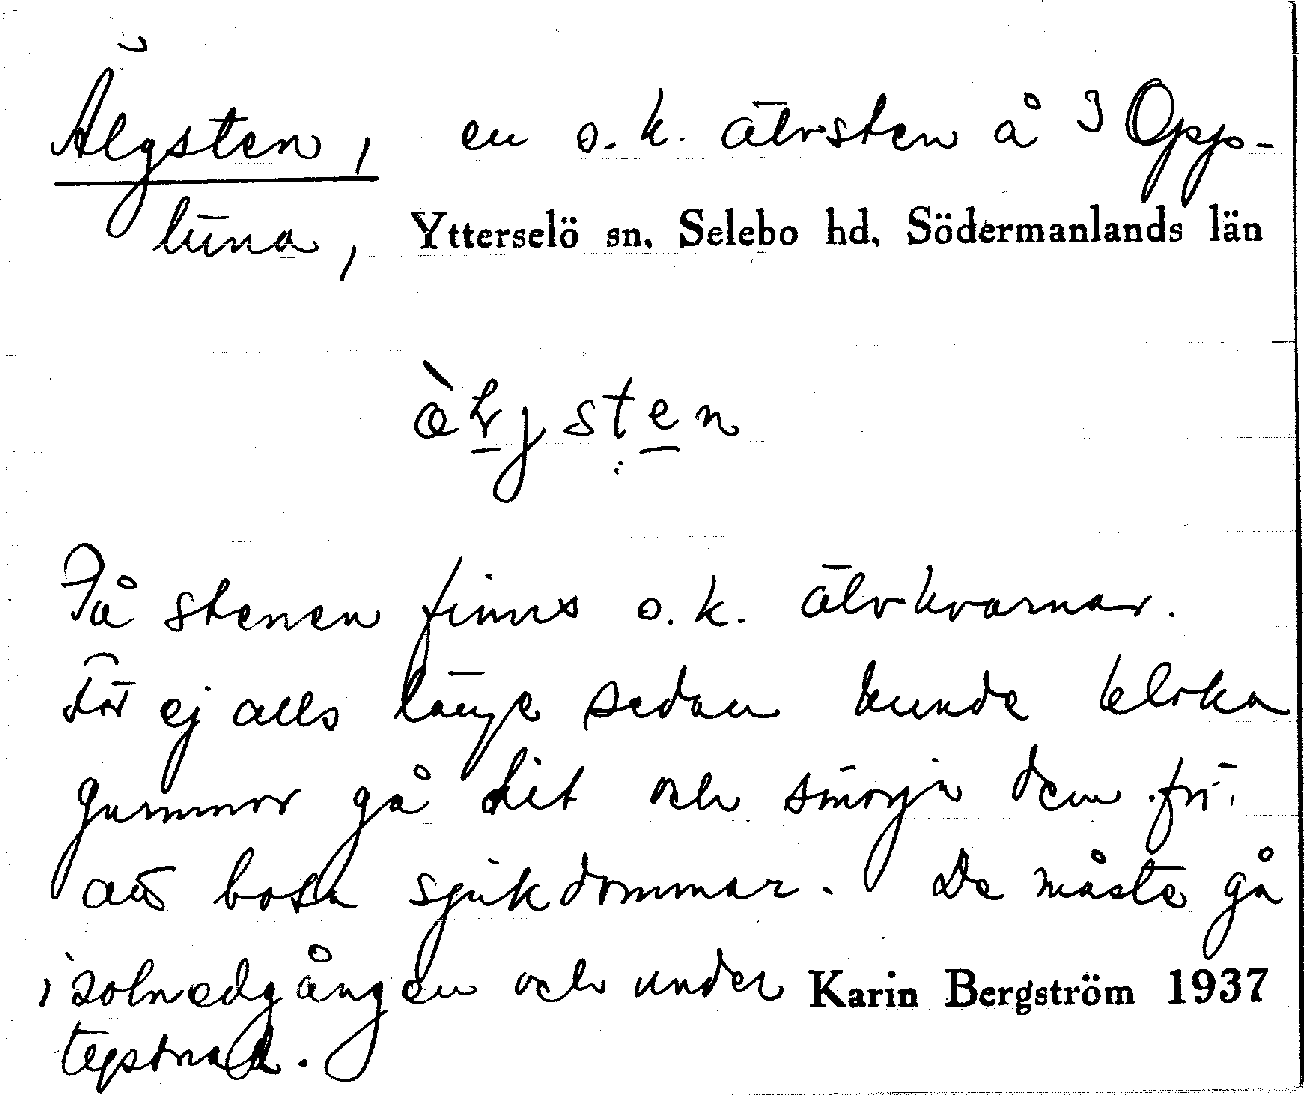 Älgsten, en s.k. älvsten å 3 Opp-
luna, Ytterselö sn. Selebo hd. Södermanlands län
På stenen finns s.k. älvkvarnar.
För ej alls länge sedan kunde kloka
gummor gå dit och smörja dem för
att bota sjukdommar. De måste gå
i solnedgången och under Karin Bergström 1937
tystnad.